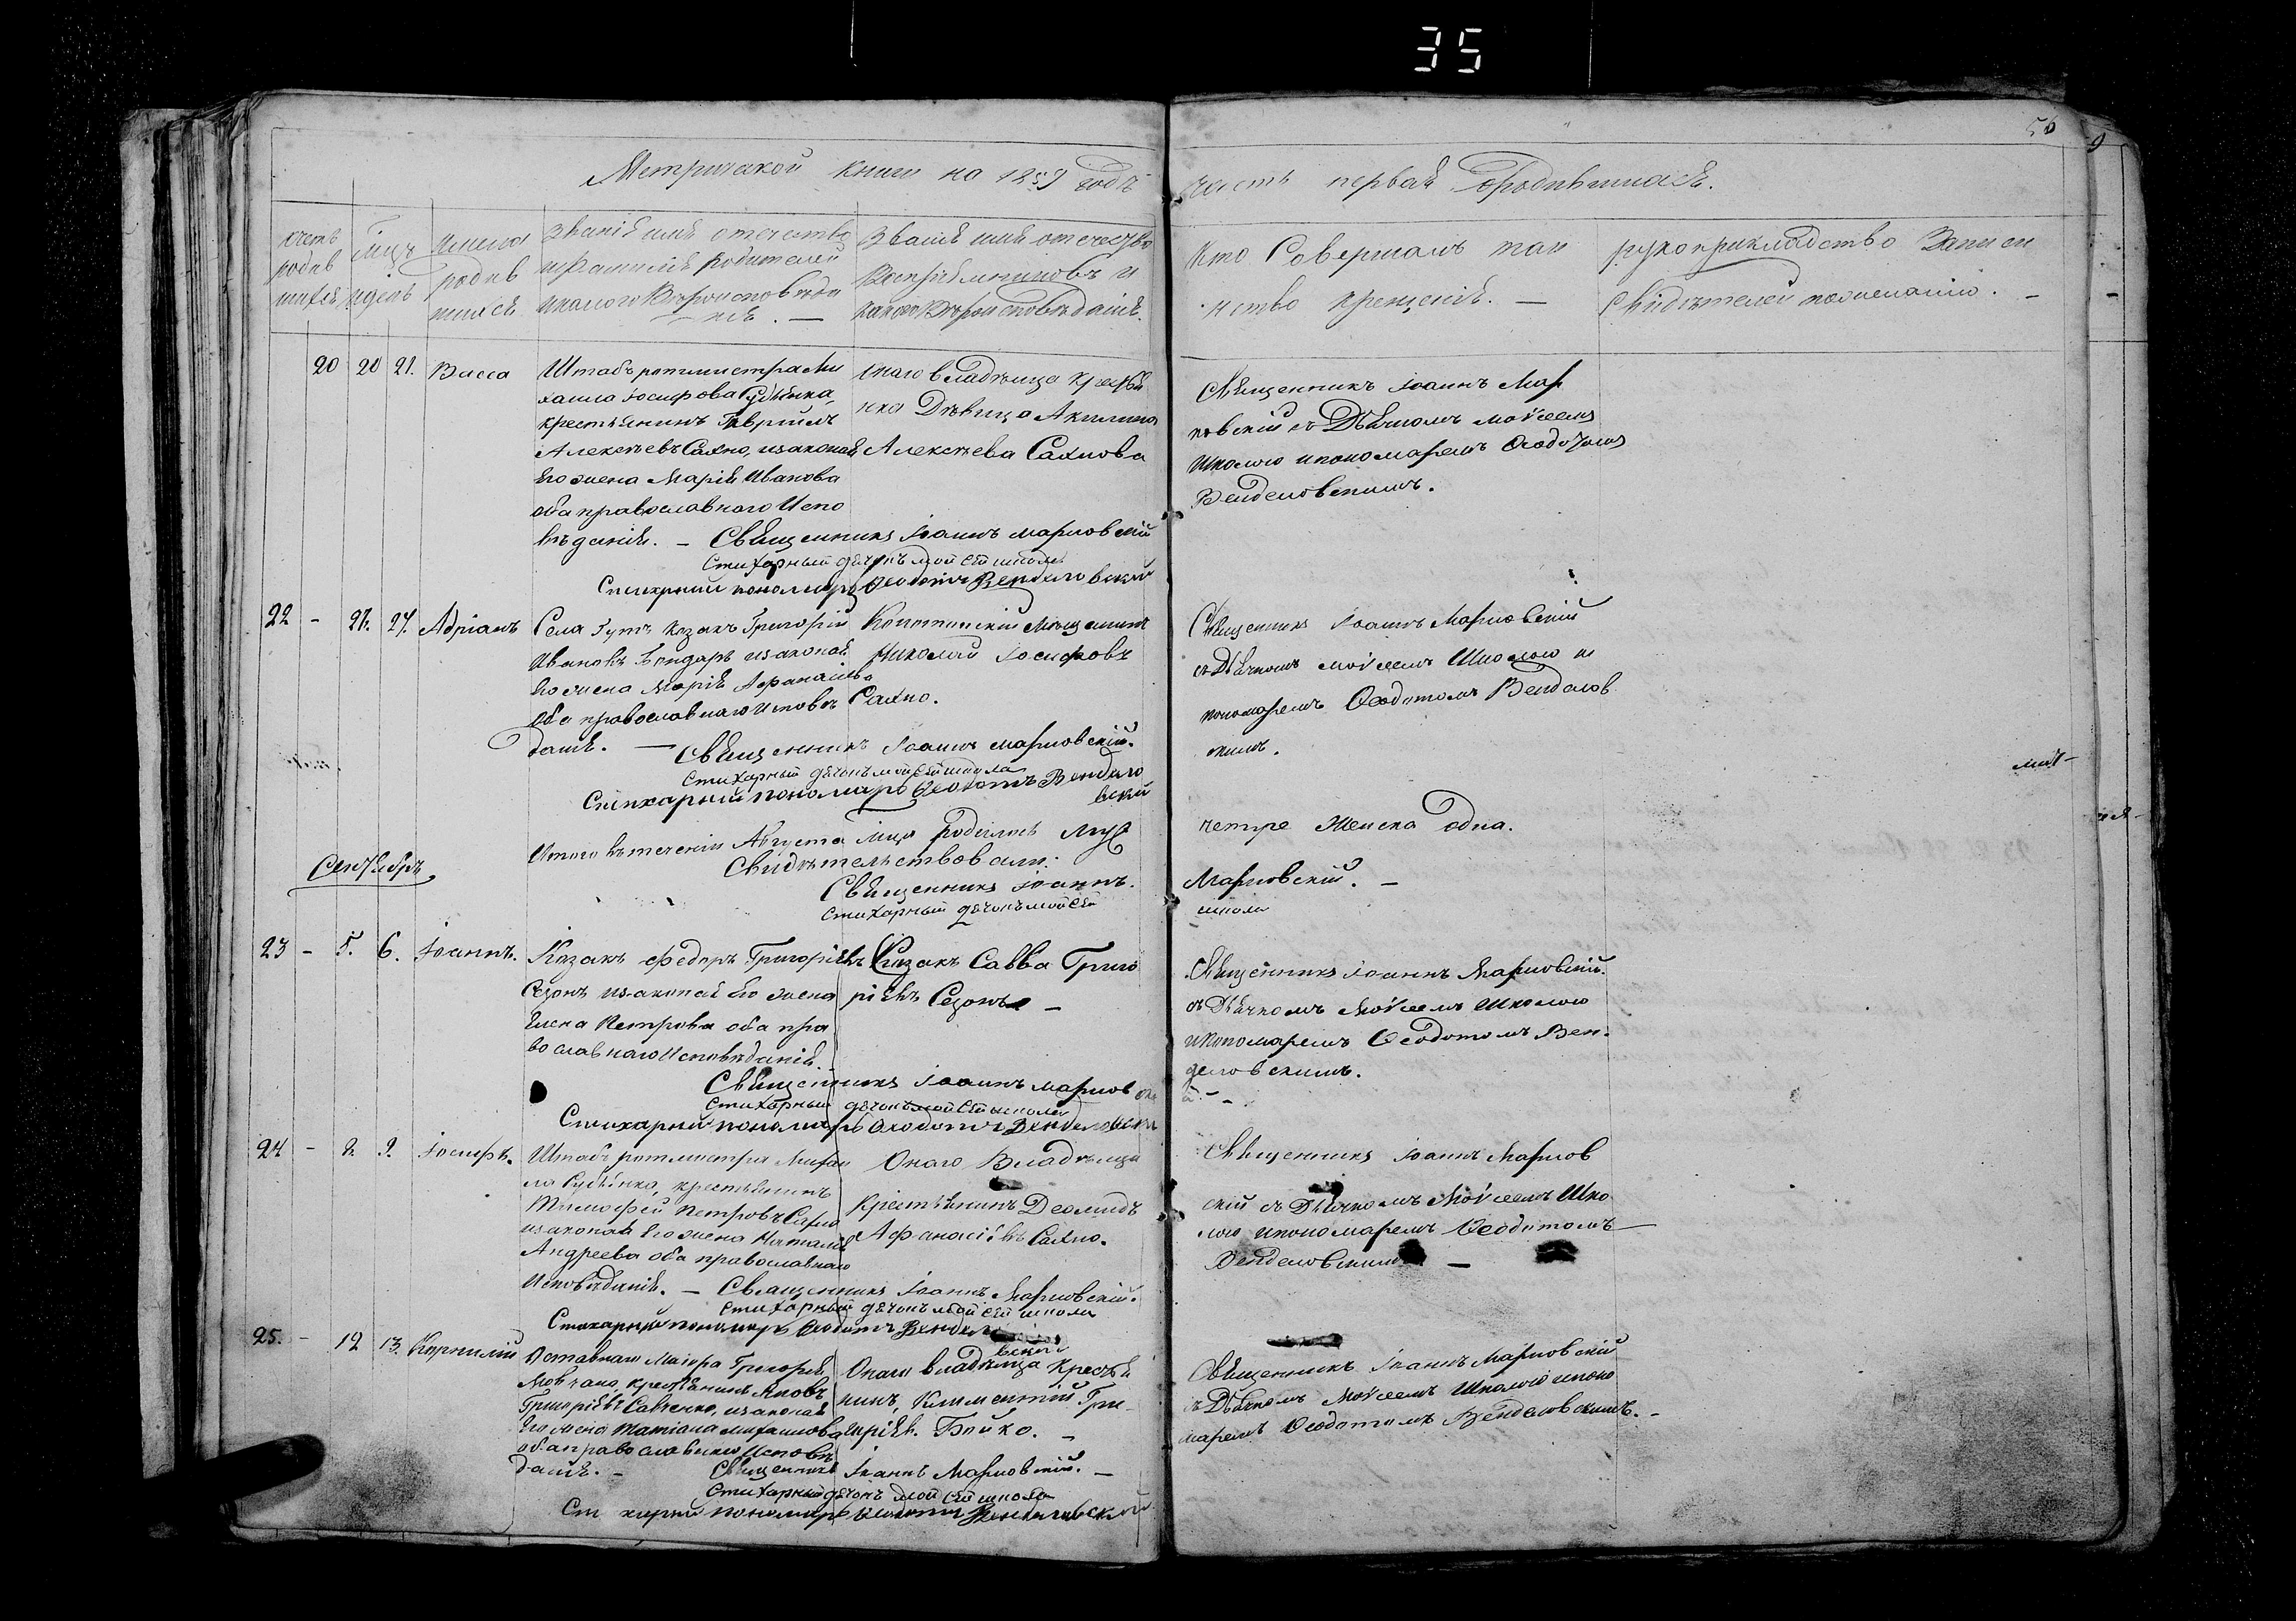 35
56
Метрической книги на 1859 годъ
часть первая о родившихся.
счетъ родив шихся
Мцъ и день
имена родив шихся
званіе имя отечество
и фамилія родителей
и какого Вѣроисповѣда
нія. —
Званіе имя отечество
Воспріемниковъ и
какого Вѣроисповѣданія.
Кто Совершалъ таи
нство крещенія. —
рукоприкладство Записи
Свидѣтелей по желанію. —
20 20 21. Васса
Штабъ ротмистра Ми
хаила Іосифова Рудѣнка,
крестьянинъ Гавріилъ
Алексѣевъ Сахно, и законая
Его жена Марія Иванова
оба православнаго Испо
вѣданія. — Священникъ Іоаннъ Марковскій
Стихарный дьячокъ Мойсей Школа
Стихарный пономарь Ѳеодотъ Венделовский
онаго владѣльца крестья
нка Дѣвица Акилина
Алексѣева Сахнова
Священникъ Іоаннъ Мар
ковскій съ Дьячкомъ Моѵсеемъ
Школою и пономаремъ Ѳеодотомъ
Венделовскимъ.
22 - 26. 27. Адріанъ
Села Гутъ Козакъ Григорій
Ивановъ Бондаръ и законая
Его жена Марія Афанасіева
оба православнаго Исповѣ
данія. — Священникъ Іоаннъ Марковскій.
Стихарный дьячокъ Мойсей Школа
Стихарный пономарь Ѳеодотъ Венделовский
Конотопскій Мѣщанинъ
Николай Іосифовъ
Сахно.
Священникъ Іоаннъ Марковскій
съ Дьячкомъ Моѵсеемъ Школою и
пономаремъ Ѳеодотомъ Венделов
скимъ.
Итого въ теченіи Августа Мца родилось Муж
четыре Женска одна.
Свидѣтельствовали:
Священникъ Іоаннъ
Марковскій. —
Стихарный дьячокъ Мойсей
школа
Сентябрь.
23 - 5. 6. Іоаннъ.
Козакъ Федоръ Григоріевъ
Сезонъ и законая Его жена
Елена Петрова оба пра
вославнаго Исповѣданія.
Священникъ Іоаннъ Марковскій. —
Стихарный дьячокъ Мойсей школа
Стихарный пономарь Ѳеодотъ Венделовски
Козакъ Савва Григо
ріевъ Сезонъ —
Священникъ Іоаннъ Марковскій.
съ Дьячкомъ Моѵсеемъ Школою
и Пономаремъ Ѳеодотомъ Вен-
деловскимъ.
24 - 8. 9. Іосифъ.
Штабъ ротмистра Михаи
ла Рудѣнка, крестьянинъ
Тимофей Петровъ Сахно
и законая Его жена Наталія
Андреева оба православнаго
Исповѣданія. — Священникъ Іоаннъ Марковскій.
Стихарный дьячокъ Мойсей школа
Стихарный пономарь Ѳеодотъ Венделовский
Онаго Владѣльца
Крестьянинъ Деомидъ
Афанасіевъ Сахно.
Священникъ Іоаннъ Марков
скій съ Дьячкомъ Моѵсеемъ Шко
лою и пономаремъ Ѳеодотомъ
Венделовскимъ —
25. - 12 13. Корнилій
Отставнаго Маіора Григорія
Мовчана, крестьянинъ Яковъ
Григоріевъ Савченко, и законая
Его жена Татіана Михаилова
оба православнаго Исповѣ
данія. — Священникъ Іоаннъ Марковскій. —
Стихарный дьячокъ Мойсей школа
Стихарный пономарь Ѳеодотъ Венделовский
Онаго владѣльца крестья
нинъ, Климентій Гри-
горіев. Бойко. —
Священникъ Іоаннъ Марковскій
съ Дьячкомъ Моѵсеемъ Школою и поно
маремъ Ѳеодотомъ Венделовскимъ. —